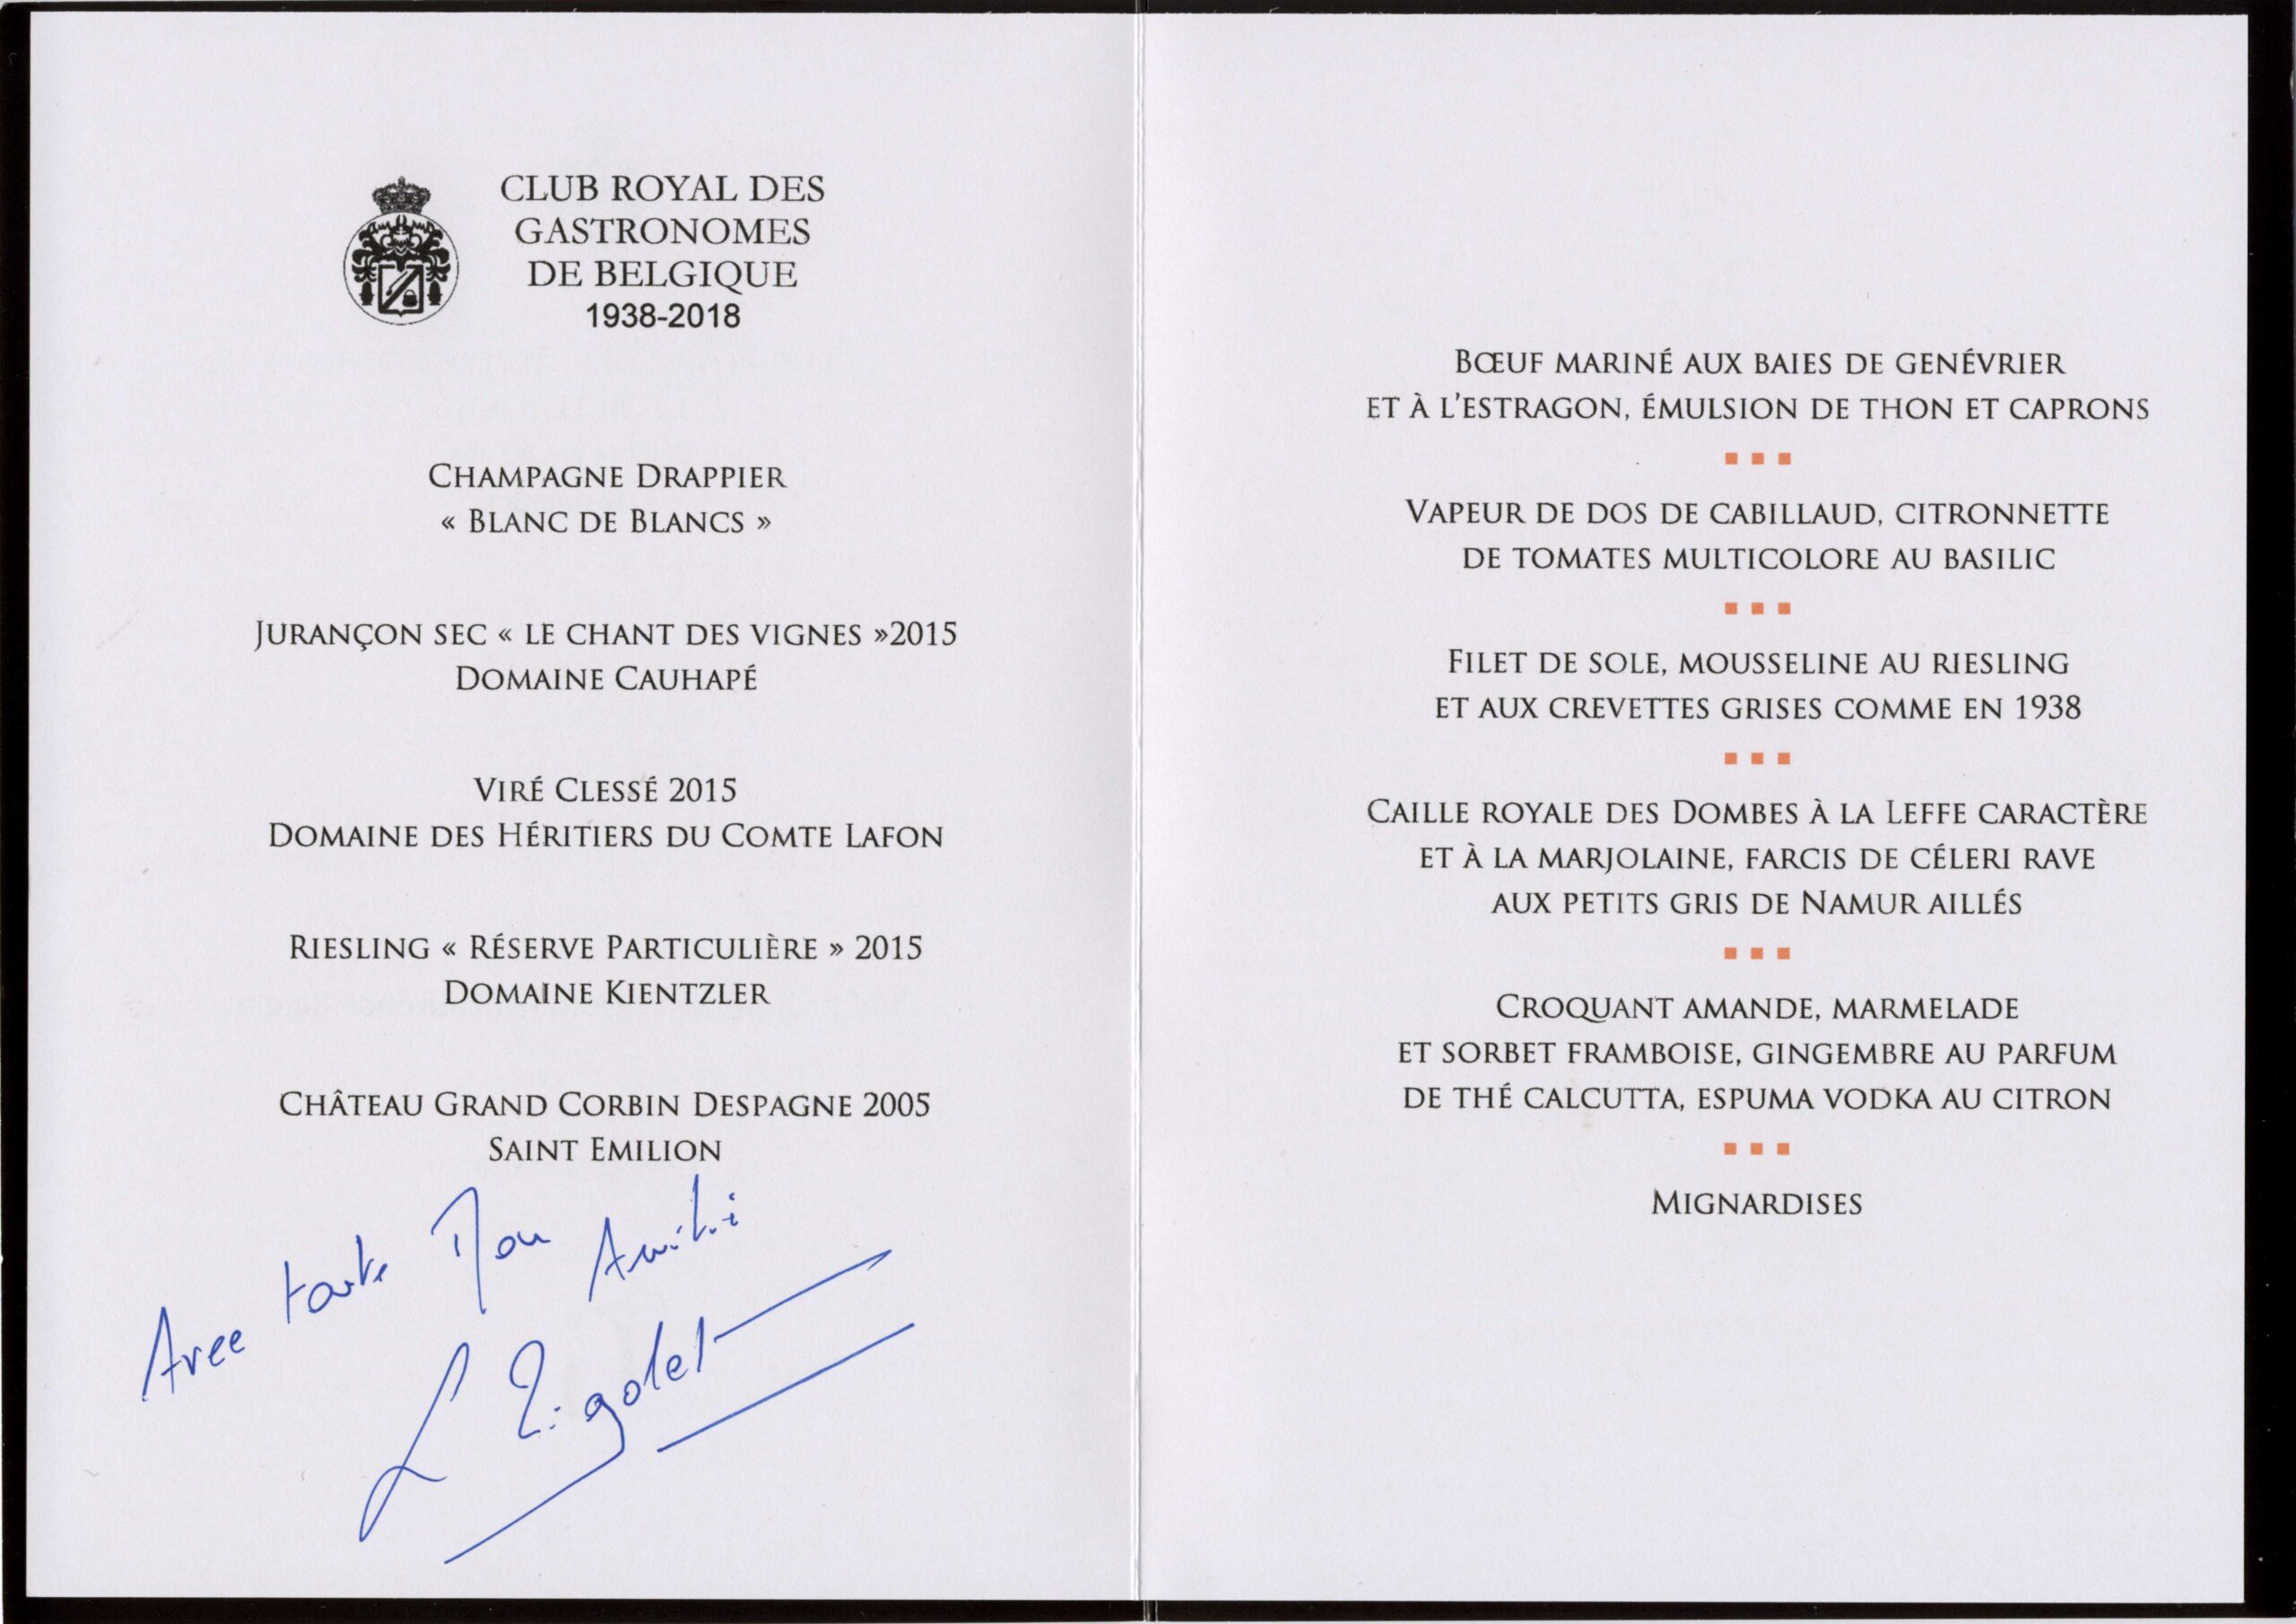 CLUB ROYAL DES
GASTRONOMES
DE BELGIQUE
1938-2018
CHAMPAGNE DRAPPIER
« BLANC DE BLANCS »
JURANÇON SEC « LE CHANT DES VIGNES »2015
DOMAINE CAUHAPÉ
VIRÉ CLESSÉ 2015
DOMAINE DES HÉRITIERS DU COMTE LAFON
RIESLING « RÉSERVE PARTICULIÈRE » 2015
DOMAINE KIENTZLER
CHÂTEAU GRAND CORBIN DESPAGNE 2005
SAINT EMILION
Avec toute Mon Amitié
L Rigolet
BŒUF MARINÉ AUX BAIES DE GENÉVRIER
ET À L'ESTRAGON, ÉMULSION DE THON ET CAPRONS
VAPEUR DE DOS DE CABILLAUD, CITRONNETTE
DE TOMATES MULTICOLORE AU BASILIC
FILET DE SOLE, MOUSSELINE AU RIESLING
ET AUX CREVETTES GRISES COMME EN 1938
CAILLE ROYALE DES DOMBES À LA LEFFE CARACTÈRE
ET À LA MARJOLAINE, FARCIS DE CÉLERI RAVE
AUX PETITS GRIS DE NAMUR AILLÉS
CROQUANT AMANDE, MARMELADE
ET SORBET FRAMBOISE, GINGEMBRE AU PARFUM
DE THÉ CALCUTTA, ESPUMA VODKA AU CITRON
MIGNARDISES